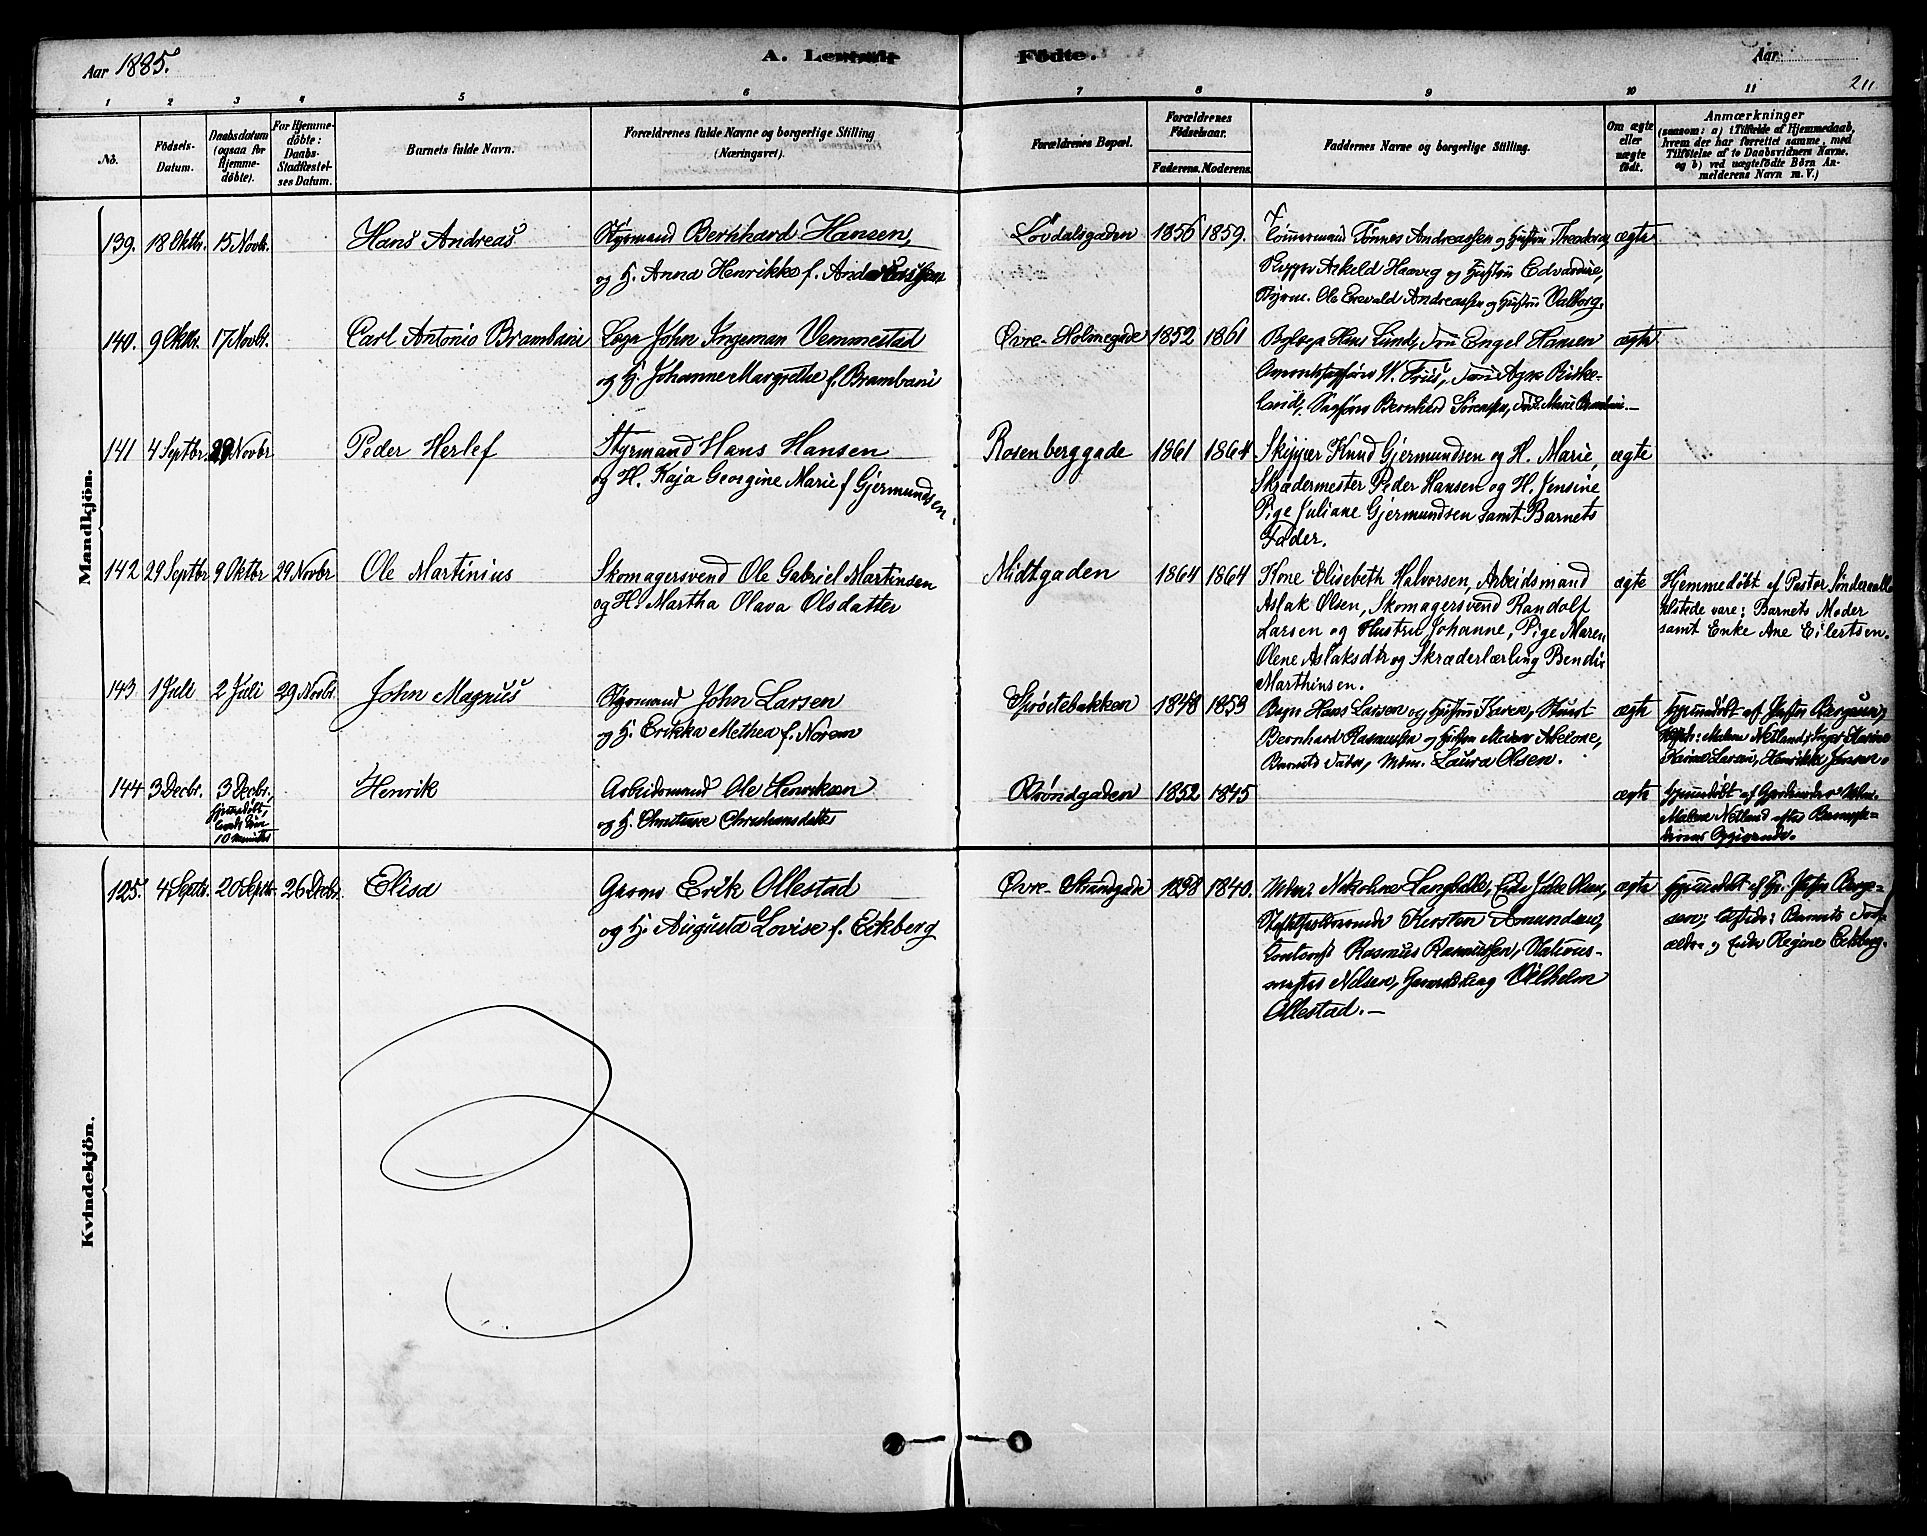 Aar 1885.
A. Levende
Födte.
Aar
211
1 2 3 4 5 6 7 8 9 10 11
No.
Födsels-
Datum.
Daabsdatum
(ogsaa for
Hjemme-
döbte).
For Hjemme-
döbte:
Daabs-
Stadfæstel-
ses Datum.
Barnets fulde Navn.
Forældrenes fulde Navne og borgerlige Stilling
(Næringsvei).
Forældrenes Bopæl.
Forældrenes
Födselsaar.
Faderens. Moderens.
Faddernes Navne og borgerlige Stilling.
Om ægte
eller
uægte
födt.
Anmærkninger
(saasom: a) i Tilfælde af Hjemmedaab,
hvem der har forrettet samme, med
Tilföielse af to Daabsvidners Navne.
og b) ved uægtefödte Börn An-
melderens Navn m. V.)
Mandkjön.
139. 18 Oktbr. 15 Novbr.
Hans Andreas
Styrmand Bernhard Hansen,
og H. Anna Henrikke f.
Lövdalsgaden
1856 1859.
Tömmermand Tönnes Andreassen og Hustru Theodora,
Skipper Askeld Haaveg og Hustru Edvardine,
Styrm. Ole Enevald Andreassen og Hustru Valborg.
ægte
140. 9 Oktbr. 17 Novbr.
Carl Antonio Brambani
Læge John Ingeman Vemmestad
og H. Johanne Margrethe f. Brambani
Övre Holmegade
1852 1861
Bylæge Hans Lund, Frue Engel Hansen
W. Friis,
land, Sagförer Bernhard Sörensen, Marie Brambani.—
ægte
141 4 Septbr. 29 Novbr
Peder Herlef
Styrmand Hans Hansen
og H. Kaja Georgine Marie f Gjermundsen.
Rosenberggade
1861 1864
Skipper Knud Gjermundsen og H. Marie,
Skrædermester Peder Hansen og H. Jensine
Pige Juliane Gjermundsen samt Barnets
Fader.
ægte
142 29 Septbr 9 Oktbr 29 Novbr
Ole Martinius
Skomagersvend Ole Gabriel Martinsen
og H. Martha Olava Olsdatter
Midtgaden
1864 1864
Kone Elisebeth Halvorsen, Arbeidsmand
Aslak Olsen, Skomagersvend Randolf
Larsen og Hustru Johanne, Pige Maren
Olene Aslaksdtr og Skræderlærling Bendix
Marthinsen.
ægte
Hjemmedöbt af Pastor
tilstede vare: Barnets Moder
samt Enke Ane Eilertsen.
143 1 Juli 2 Juli 29 Novbr.
John Magnus
Styrmand John Larsen
og H. Erikka Methea f. Noren
Spröitebakken
1848 1853
Hans Larsen og Hustru Karen,
Bernhard Rasmussen og Hustru Maren Abelone,
Barnets Fader, Mdm. Laura Olsen.
ægte
Hjemmedöbt af Pastor Bergesen,
Malene Netland,
Larsen, Henrikke Jensen.
144 3 Decbr. 3 Decbr.
Hjemmedöbt,
levede kun
10 minutter
Henrik
Arbeidsmand Ole Henriksen
og H. Christiane Christiansdatter
1852 1845
ægte
Hjemmedöbt af Gjordemoder Mdm.
Malene Netland efter
Opgivende.
Kvindekjön.
125. 4 Septbr. 20 Septbr. 26 Decbr.
Elisa
Erik Ollestad
og H. Augusta Lovise f. Eckberg
Övre Strandgade
1838 1840.
Kirsten Amundsen,
Rasmus Rasmussen, Stations-
mester Nelsen, Vilhelm
Ollestad.—
ægte
Hjemmedöbt af Hr. Pastor Berge-
sen; Barnets For-
ældre og Enke Regine Eckberg.